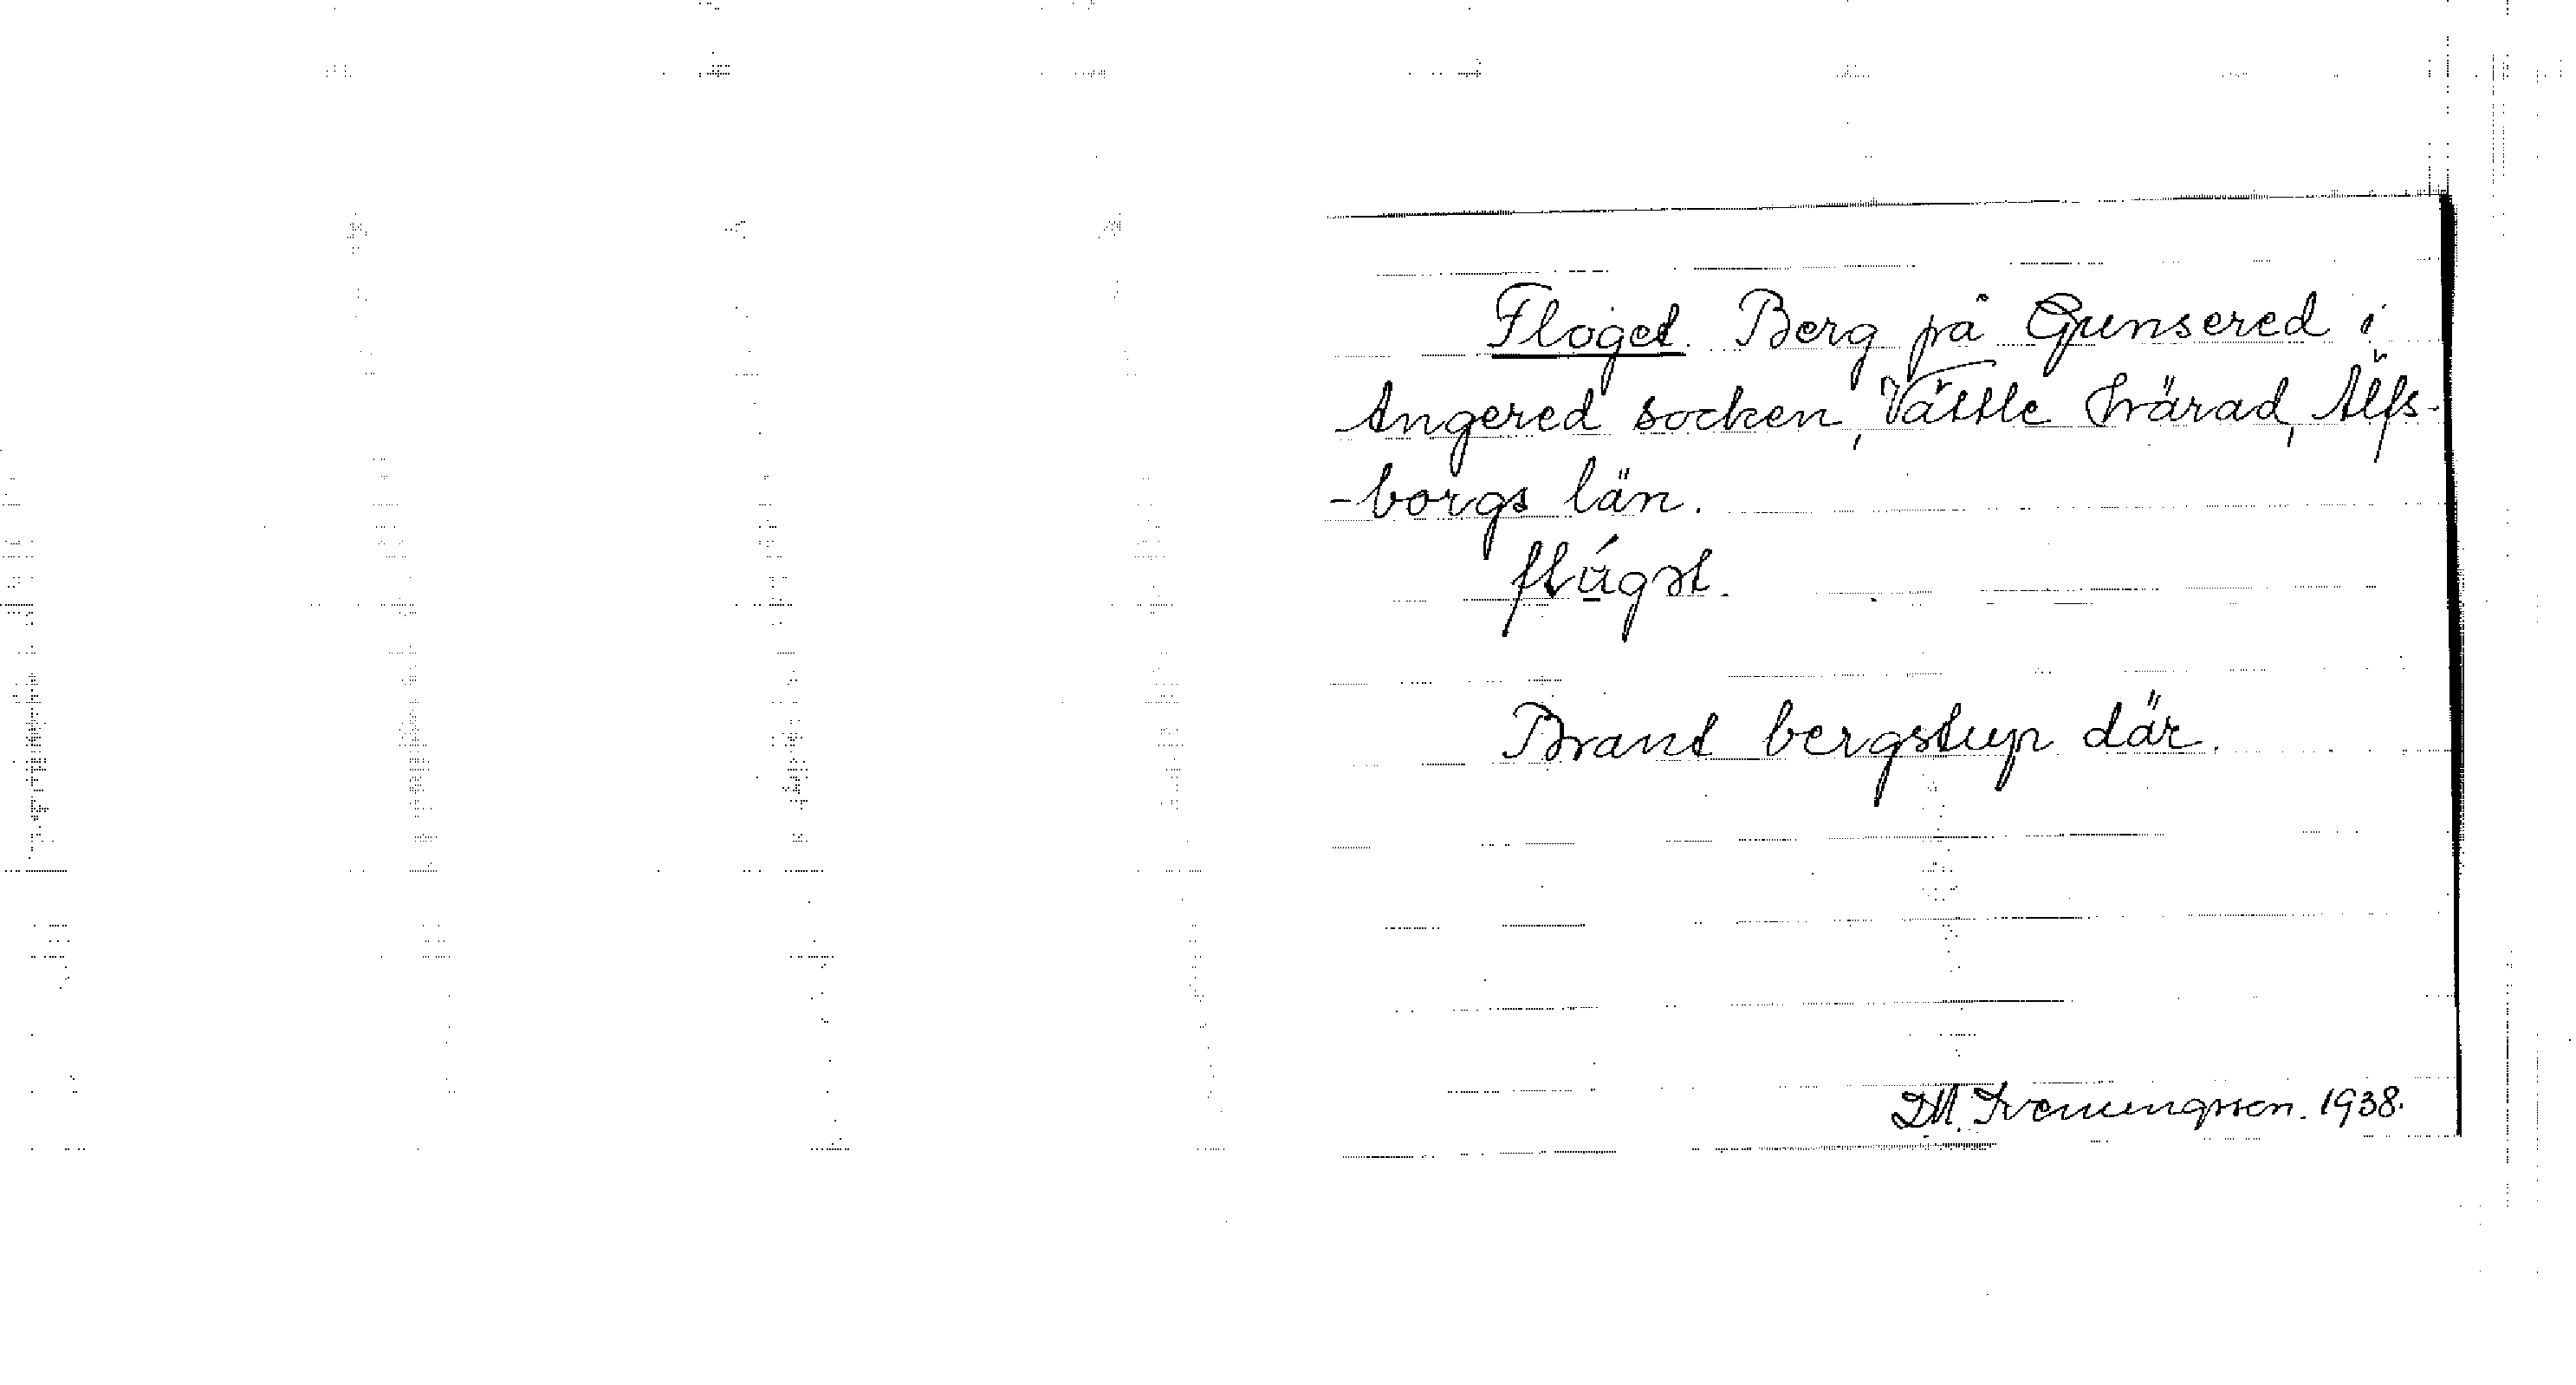 Floget. Berg på Gunsered i
Angered socken, Vättle härad, Älfs-
-borgs län.
Brant bergstup där.
D.M. 1938.